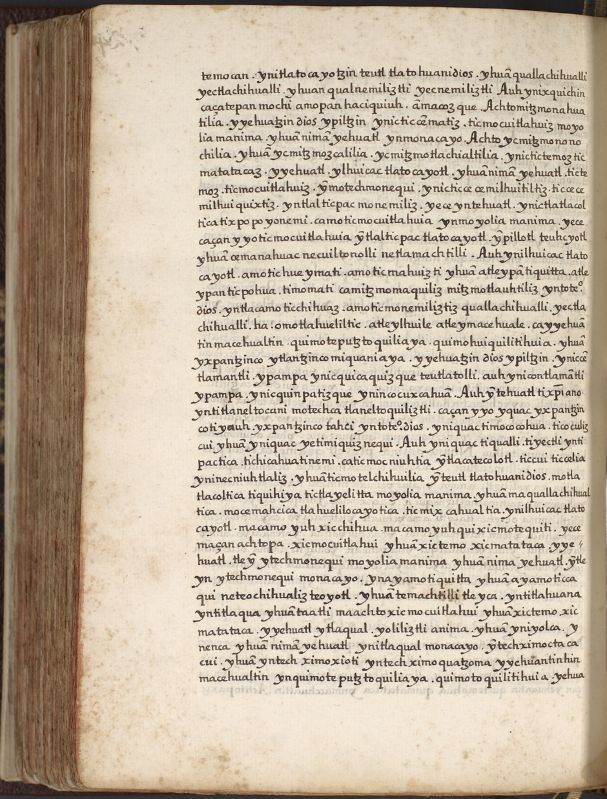 temocan . ynitlatocayotzin teutl tlatohuani dios . yhuā quallachihualli
yectlachihualli . yhuan qualnemiliztli yecnemiliztli Auh ynixquichin
caçatepan mochi amopan haciquiuh . āmacozque . Achtomitzmonahua
tilia . yyehuatzin dios ypiltzin ynictic cēmatiz . ticmocuitlahuiz moyo
lia manima . yhuā nimā yehuatl ynmonacayo . Achto ycmitzmonono
chilia . yhuā ycmitzmozcalilia . ycmitzmotlachialtilia . ynictictemoz tic
matataca3 . yyehuatl . ylhuicac tlatocayotl . yhuā nimā yehuatl . ticte
moz . ticmocuitlahuiz . ȳmotechmonequi . ynictic ce cemilhuitiltiz . ticcece
milhuiquixtiz . yntlalticpac monemiliz . yece yntehuatl . ynictlatlacol
ticatixpopoyonemi . camoticmocuitlahuia ynmoyolia manima . yece
caçan yyoticmocuitlahuia ȳtlalticpac tlatocayotl . ȳpillotl teuhcyotl
yhuā cemanahuac necuiltonolli netlamachtilli . Auh ynilhuicac tlato
cayotl . amotic hueymati . amotic mahuizti yhuā atleypā tiquitta . atle
ypan ticpohua . timomati camitzmomaquiliz mitzmotlauhtiliz yntoteº.
dios . yntlacamo ticchihuaz . amoticnemiliztiz quallachihualli . yectla
chihualli . ha . omotlahueliltic . atleylhuile atleymacehuale . cayyehuā
tin macehualtin . quimoteputztoquiliaya . quimohuiquilitihuia . yhuā
yxpantzinco ytlantzinco miquaniaya . yyehuatzin dios ypiltzin . yniccē
tlamantli . ypampa ynicquicaquizque teutlatolli . auh ynicontlamātli
ypampa . ynicquinpatizque ynincocuxcahuā . Auh ȳtehuatl tixp̄iano
yntitlaneltocani motechca tlaneltoquiliztli . caçan yyo yquac yxpantzin
cotiyauh yxpantzinco tahci yntoteº. dios . yniquac timococohua . ticoculiz
cui yhuā yniquac yetimiquiznequi . Auh yniquac tiqualli . tiyectli ynti
pactica . tichicahuatinemi . caticmocniuhtia ȳtlacatecolotl . ticcui ticcelia
yninecniuhtlaliz . yhuā ticmotelchihuilia ȳteutl tlatohuani dios . motla
tlacoltica tiquihiya tictlayelitta moyolia manima . yhuā maquallachihual
tica . mocemahcica tlahuelilocayotica . ticmixcahualtia . ynilhuicac tlato
cayotl . macamo yuh xicchihua macamo yuh quixicmotequiti . yece
maçan achtopa . xicmocuitlahui yhuā xictemo xicmatataca . yye-
huatl . tleȳ ytechmonequi moyolia manima yhuā nima yehuatl . ȳtle
yn ytechmonequi monacayo . ynayamo tiquitta yhuā ayamoticca
qui neteochihualiz teoyotl . yhuā temachtilli tleyca . yntitlahuana
yntitlaqua yhuā tnatli maachto xicmocuitlahui yhuā xictemo . xic
matataca . yyehuatl ytlaqual . yoliliztli anima . yhuā yniyolca . y
nenca yhuā nimā yehuatl ynitlaqual monacayo . ȳtechximoctaca
cui . yhuā yntech ximoxioti yntech ximoquatzoma yyehuantinhin
macehualtin ynquimoteputztoquiliaya . quimotoquilitihuia . yehua